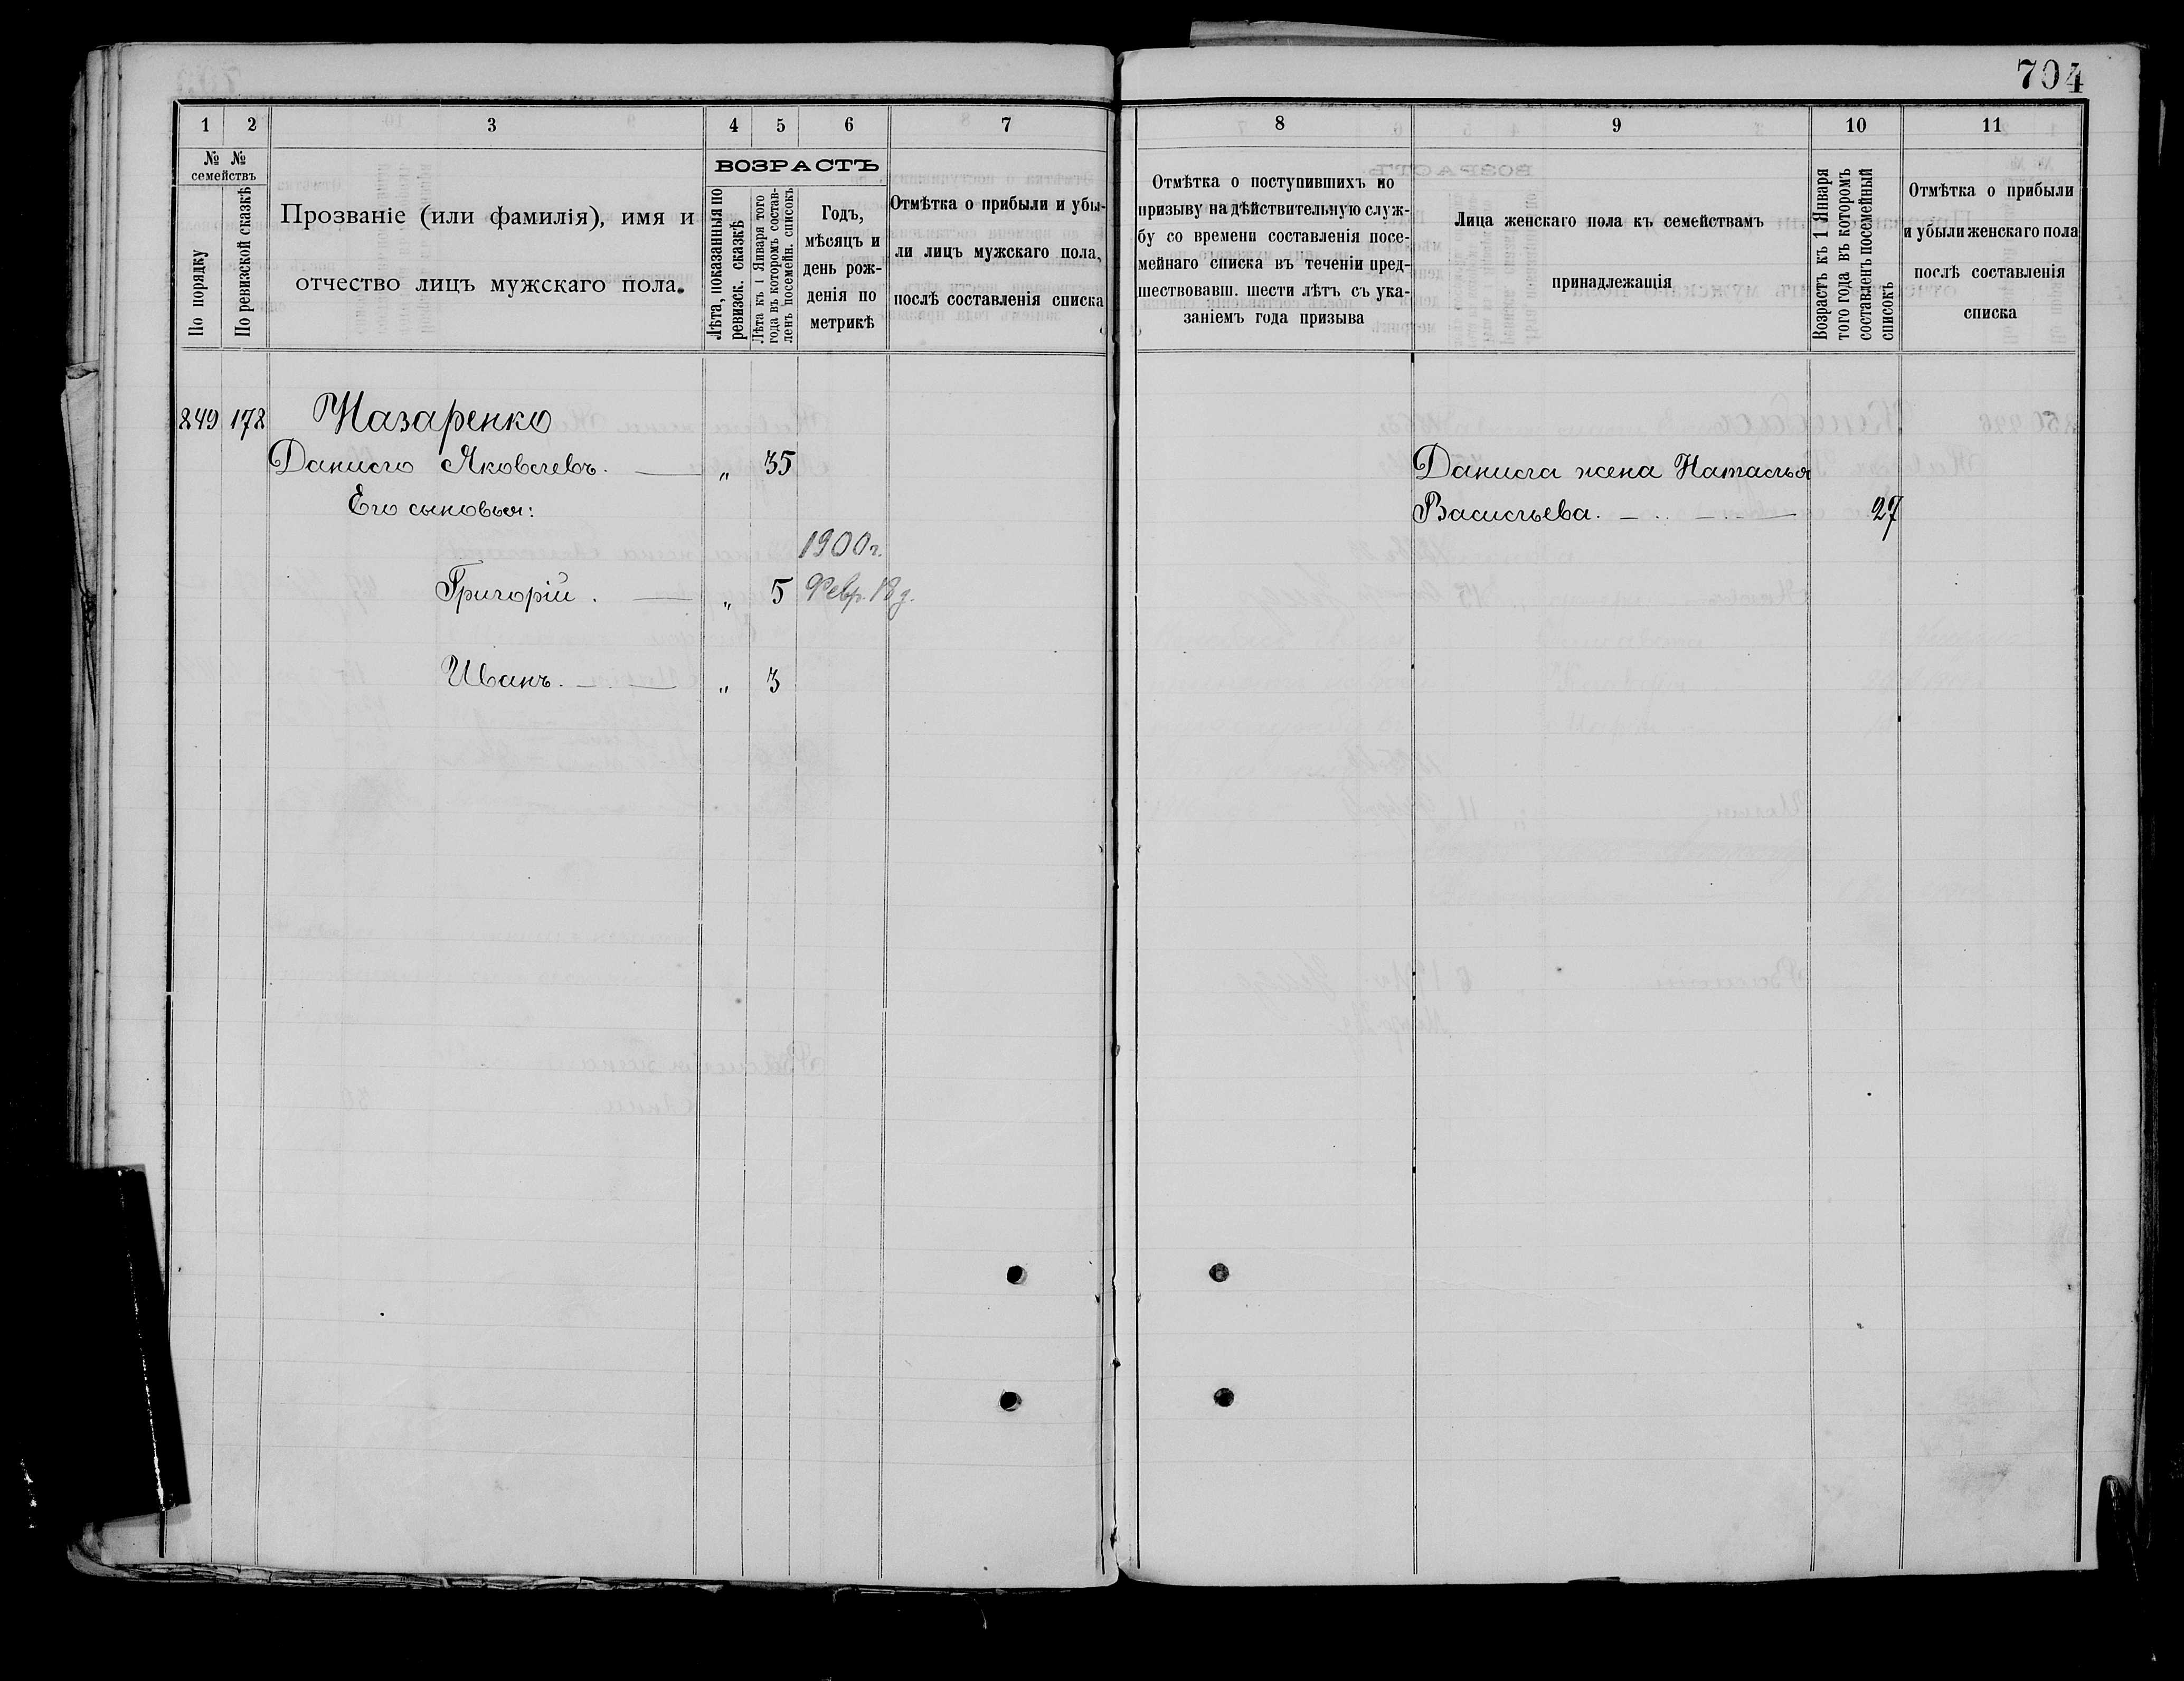 704
1 2 3 4 5 6 7
№ № семействъ
По порядку
По ревизской сказкѣ
Прозваніе (или фамилія), имя и
отчество лицъ мужскаго пола.
ВОЗРАСТЪ
Лѣта, показанныя по
ревизск. сказкѣ
Лѣта къ 1 Января того
года въ которомъ состав-
ленъ посемейн. списокъ
Годъ,
мѣсяцъ и
день рож-
денія по
метрикѣ
Отмѣтка о прибыли и убы-
ли лицъ мужскаго пола,
послѣ составленія списка
849 178 Назаренко
Данило Яковлевъ. „ 35
Его сыновья:
1900 г.
Григорій. „ 5 Февр. 18 д.
Иванъ. „ 3
8 9 10 11
Отмѣтка о поступившихъ по
призыву на дѣйствительную служ-
бу со времени составленія посе-
мейнаго списка въ теченіи пред-
шествовавш. шести лѣтъ съ ука-
заніемъ года призыва
Лица женскаго пола къ семействамъ
принадлежащія
Возрастъ къ 1 Января
того года въ которомъ
составленъ посемейный
списокъ
Отмѣтка о прибыли
и убыли женскаго пола
послѣ составленія
списка
Данила жена Наталья
Васильева. 27